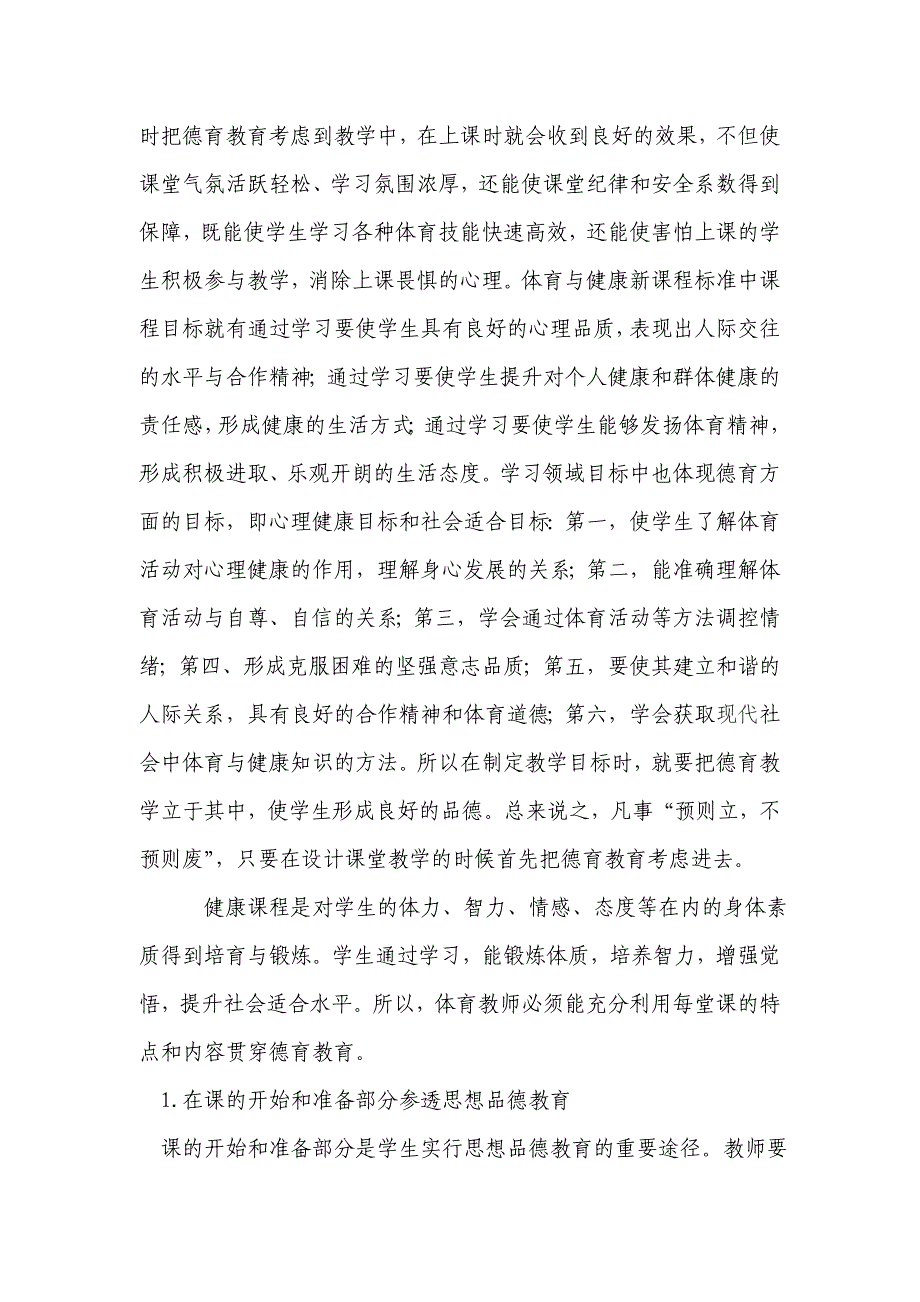 时把德育教育考虑到教学中，在上课时就会收到良好的效果，不但使
课堂气氛活跃轻松、学习氛围浓厚，还能使课堂纪律和安全系数得到
保障，既能使学生学习各种体育技能快速高效，还能使害怕上课的学
生积极参与教学，消除上课畏惧的心理。体育与健康新课程标准中课
程目标就有通过学习要使学生具有良好的心理品质，表现出人际交往
的水平与合作精神；通过学习要使学生提升对个人健康和群体健康的
责任感，形成健康的生活方式；通过学习要使学生能够发扬体育精神，
形成积极进取、乐观开朗的生活态度。学习领域目标中也体现德育方
面的目标，即心理健康目标和社会适合目标：第一，使学生了解体育
活动对心理健康的作用，理解身心发展的关系；第二，能准确理解体
育活动与自尊、自信的关系；第三，学会通过体育活动等方法调控情
绪；第四、形成克服困难的坚强意志品质；第五，要使其建立和谐的
人际关系，具有良好的合作精神和体育道德；第六，学会获取现代社
会中体育与健康知识的方法。所以在制定教学目标时，就要把德育教
学立于其中，使学生形成良好的品德。总来说之，凡事“预则立，不
预则废”，只要在设计课堂教学的时候首先把德育教育考虑进去。
健康课程是对学生的体力、智力、情感、态度等在内的身体素
质得到培育与锻炼。学生通过学习，能锻炼体质，培养智力，增强觉
悟，提升社会适合水平。所以，体育教师必须能充分利用每堂课的特
点和内容贯穿德育教育。
1.在课的开始和准备部分参透思想品德教育
课的开始和准备部分是学生实行思想品德教育的重要途径。教师要